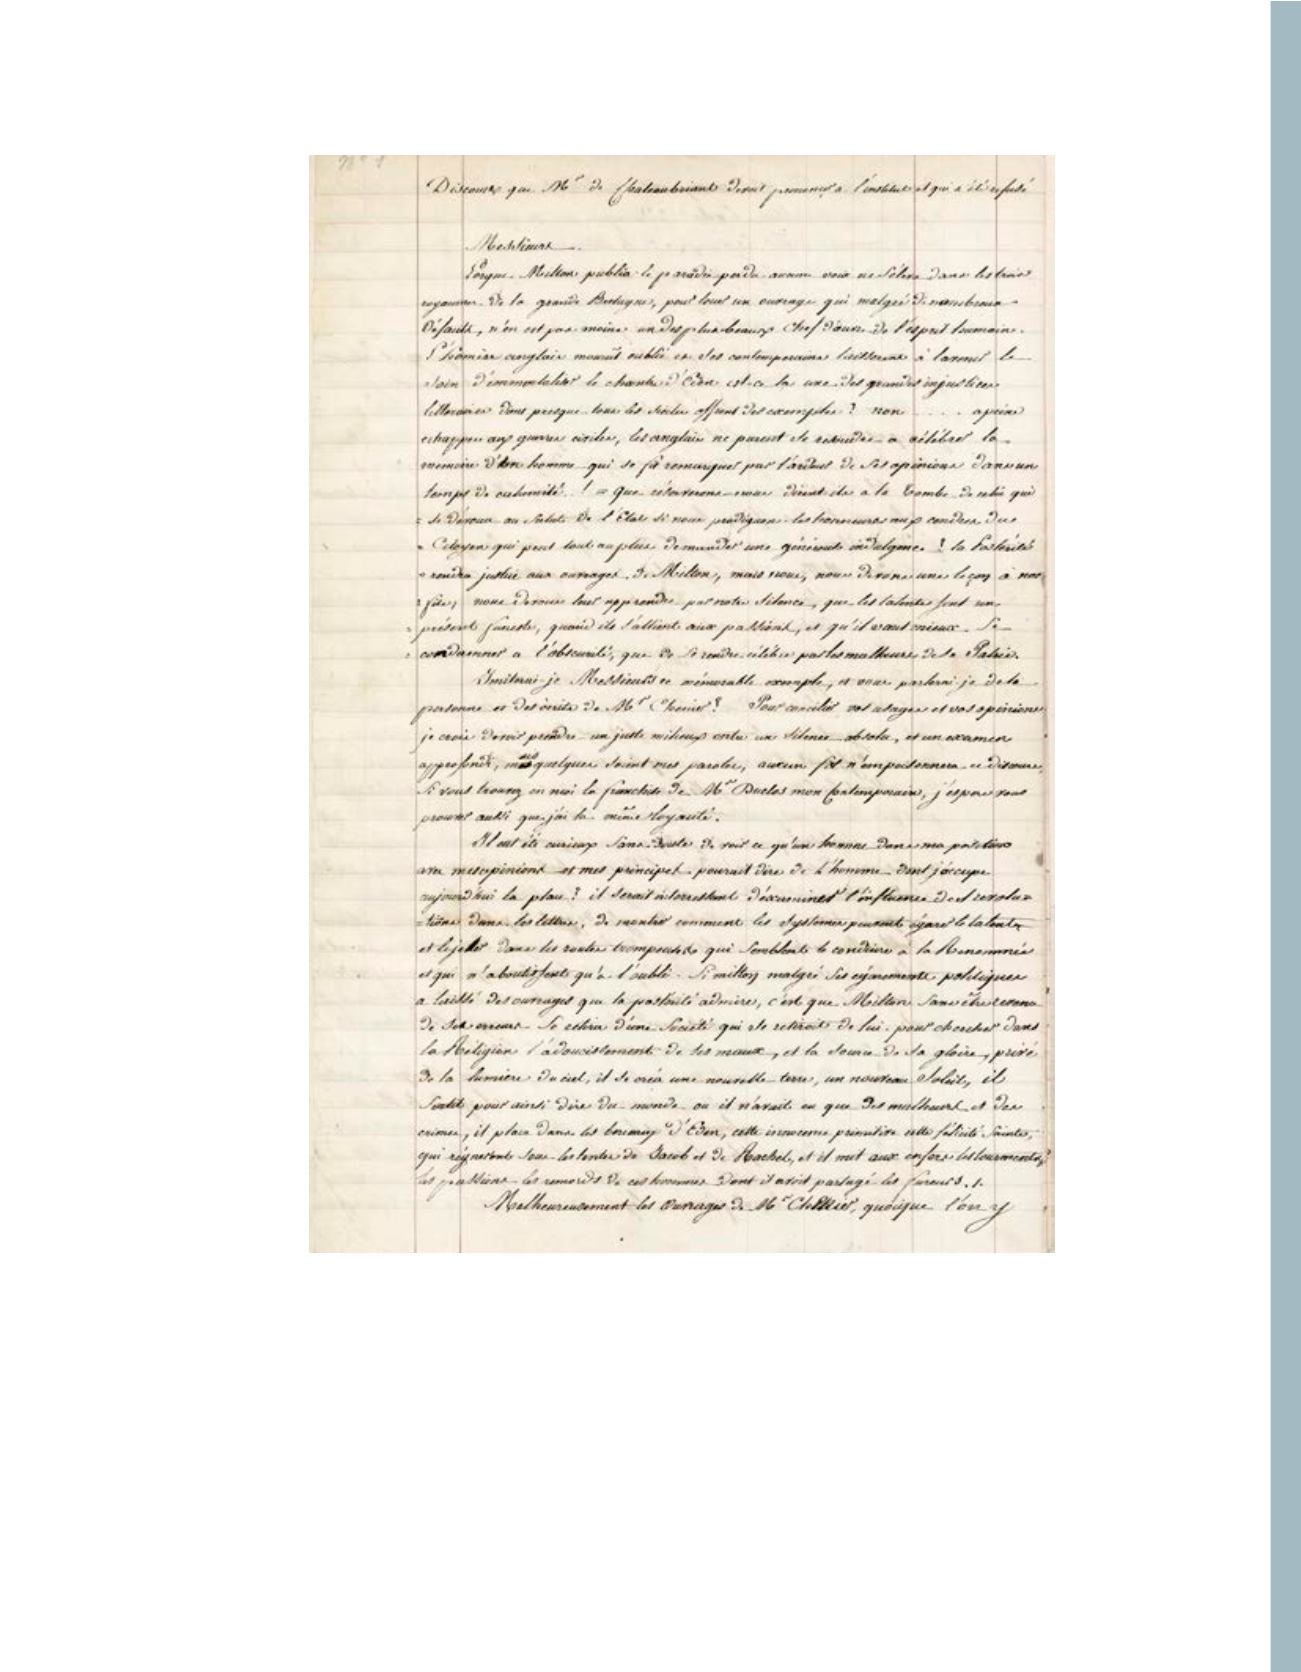 N° 1
Discours que Mr de Chateaubriant devait prononcer a l'institut et qui a été refusé
Messieurs
Lorsque Milton publia le paradis perdu aucune voix ne s'éleva dans les trois
royaumes de la grande Bretagne, pour louer un ouvrage qui malgré de nombreux
défauts, n'en est pas moins un des plus beaux chef d'œuvre de l'esprit humain.
L'homère anglais mourut oublié et ses contemporains laissèrent à l'avenir le
soin d'immortaliser le chantre d'Eden est-ce la une des grandes injustices
littéraires dont presque tous les siècles offrent des exemples ? non . . . . a peine
echappés aux guerres civiles, les anglais ne purent se resoudre a célébrer la
memoire d'un homme qui se fit remarquer par l'ardeur de ses opinions dans un
temps de calamité. ! = que réserverons-nous dirent ils a la Tombe de celui qui
= se dévoua au salut de l'Etat si nous prodiguons les honneurs aux cendres du
= Citoyen qui peut tout au plus demander une généreuse indulgence ! la Postérité
= rendra justice aux ouvrages de Milton, mais nous, nous devons une leçon à nos
= fils, nous devons leur apprendre par notre silence, que les talents sont un
= présent funeste, quand ils s'allient aux passions, et qu'il vaut mieux se
= condamner a l'obscurité, que de se rendre célèbre par les malheurs de sa Patrie.
Imiterai-je Messieurs ce mémorable exemple, et vous parlerai je de la
personne et des écrits de Mr Chenier ? Pour concilier vos usages et vos opinions
je crois devoir prendre un juste milieux entre un silence absolu, et un examen
approfondi, mais quelques soient mes paroles, aucun fiel n'empoisonnera ce discours,
si vous trouvez en moi la franchise de Mr Duclos mon Contemporain, j'espere vous
prouver aussi que j'ai la même loyauté.
Il eut été curieux sans doute de voir ce qu'un homme dans ma position
avec mes opinions et mes principes pourait dire de L'homme dont j'occupe
aujourd'hui la place ? il serait interressant d'examiner l'influence des revolu=
=tions dans les lettres, de montrer comment les systemes peuvent égarer le talent
et le jetter dans les routes trompeuses qui semblent le conduire à la Renommée
et qui n'aboutissent qu'a l'oubli. Si milton malgré ses égarements politiques
a laissé des ouvrages que la postérité admire, c'est que Milton sans être revenu
de ses erreurs se retira d'une Société qui se retirait de lui. pour chercher dans
la Réligion l'adoucissement de ses maux, et la source de sa gloire, privé
de la lumiere du ciel, il se créa une nouvelle terre, un nouveau Soleil, il
sortit pour ainsi dire du monde ou il n'avait vu que des malheurs et des
crimes, il plaça dans les berceaux d'Eden, cette innocence primitive cette félicité sainte,
qui régnerent sous les tentes de Jacob et de Rachel, et il mit aux enfers les tourments,
les passions les remords de ces hommes dont il avoit partagé les fureurs. /.
Malheureusement les Ouvrages de Mr Chenier, quoique l'on y